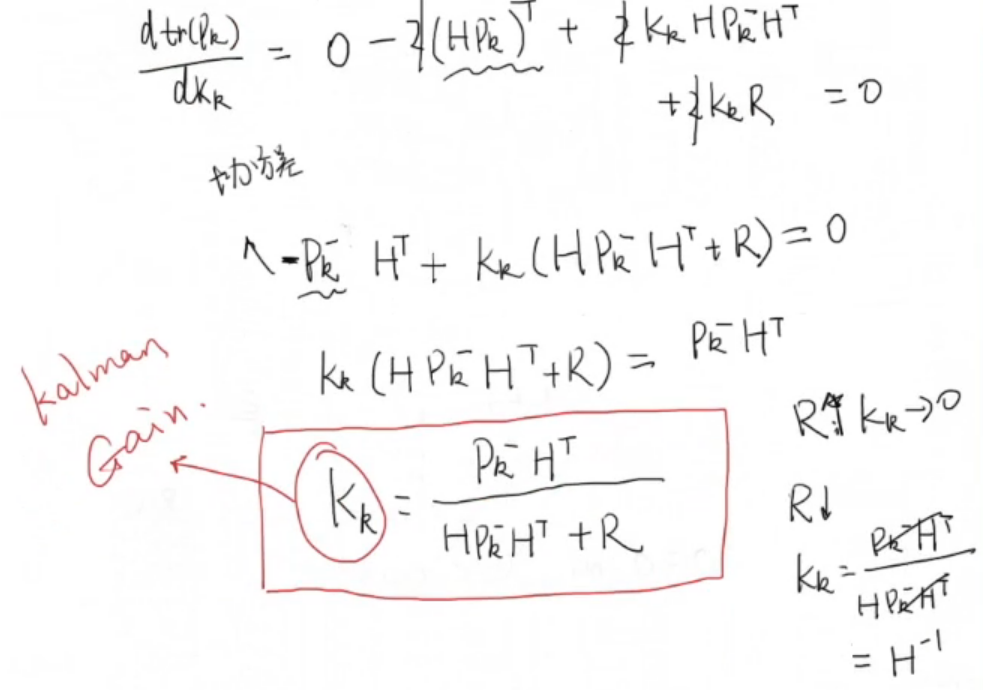 d tr(Pk) / dKk = 0 - 2(HPk⁻)ᵀ + 2 Kk HPk⁻Hᵀ
+ 2 Kk R = 0
协方差
- Pk⁻ Hᵀ + Kk (H Pk⁻ Hᵀ + R) = 0
Kk (H Pk⁻ Hᵀ + R) = Pk⁻ Hᵀ
kalman
Gain.
Kk = Pk⁻ Hᵀ / HPk⁻Hᵀ + R
R↑ Kk → 0
R↓
Kk = Pk⁻Hᵀ / HPk⁻Hᵀ
= H⁻¹